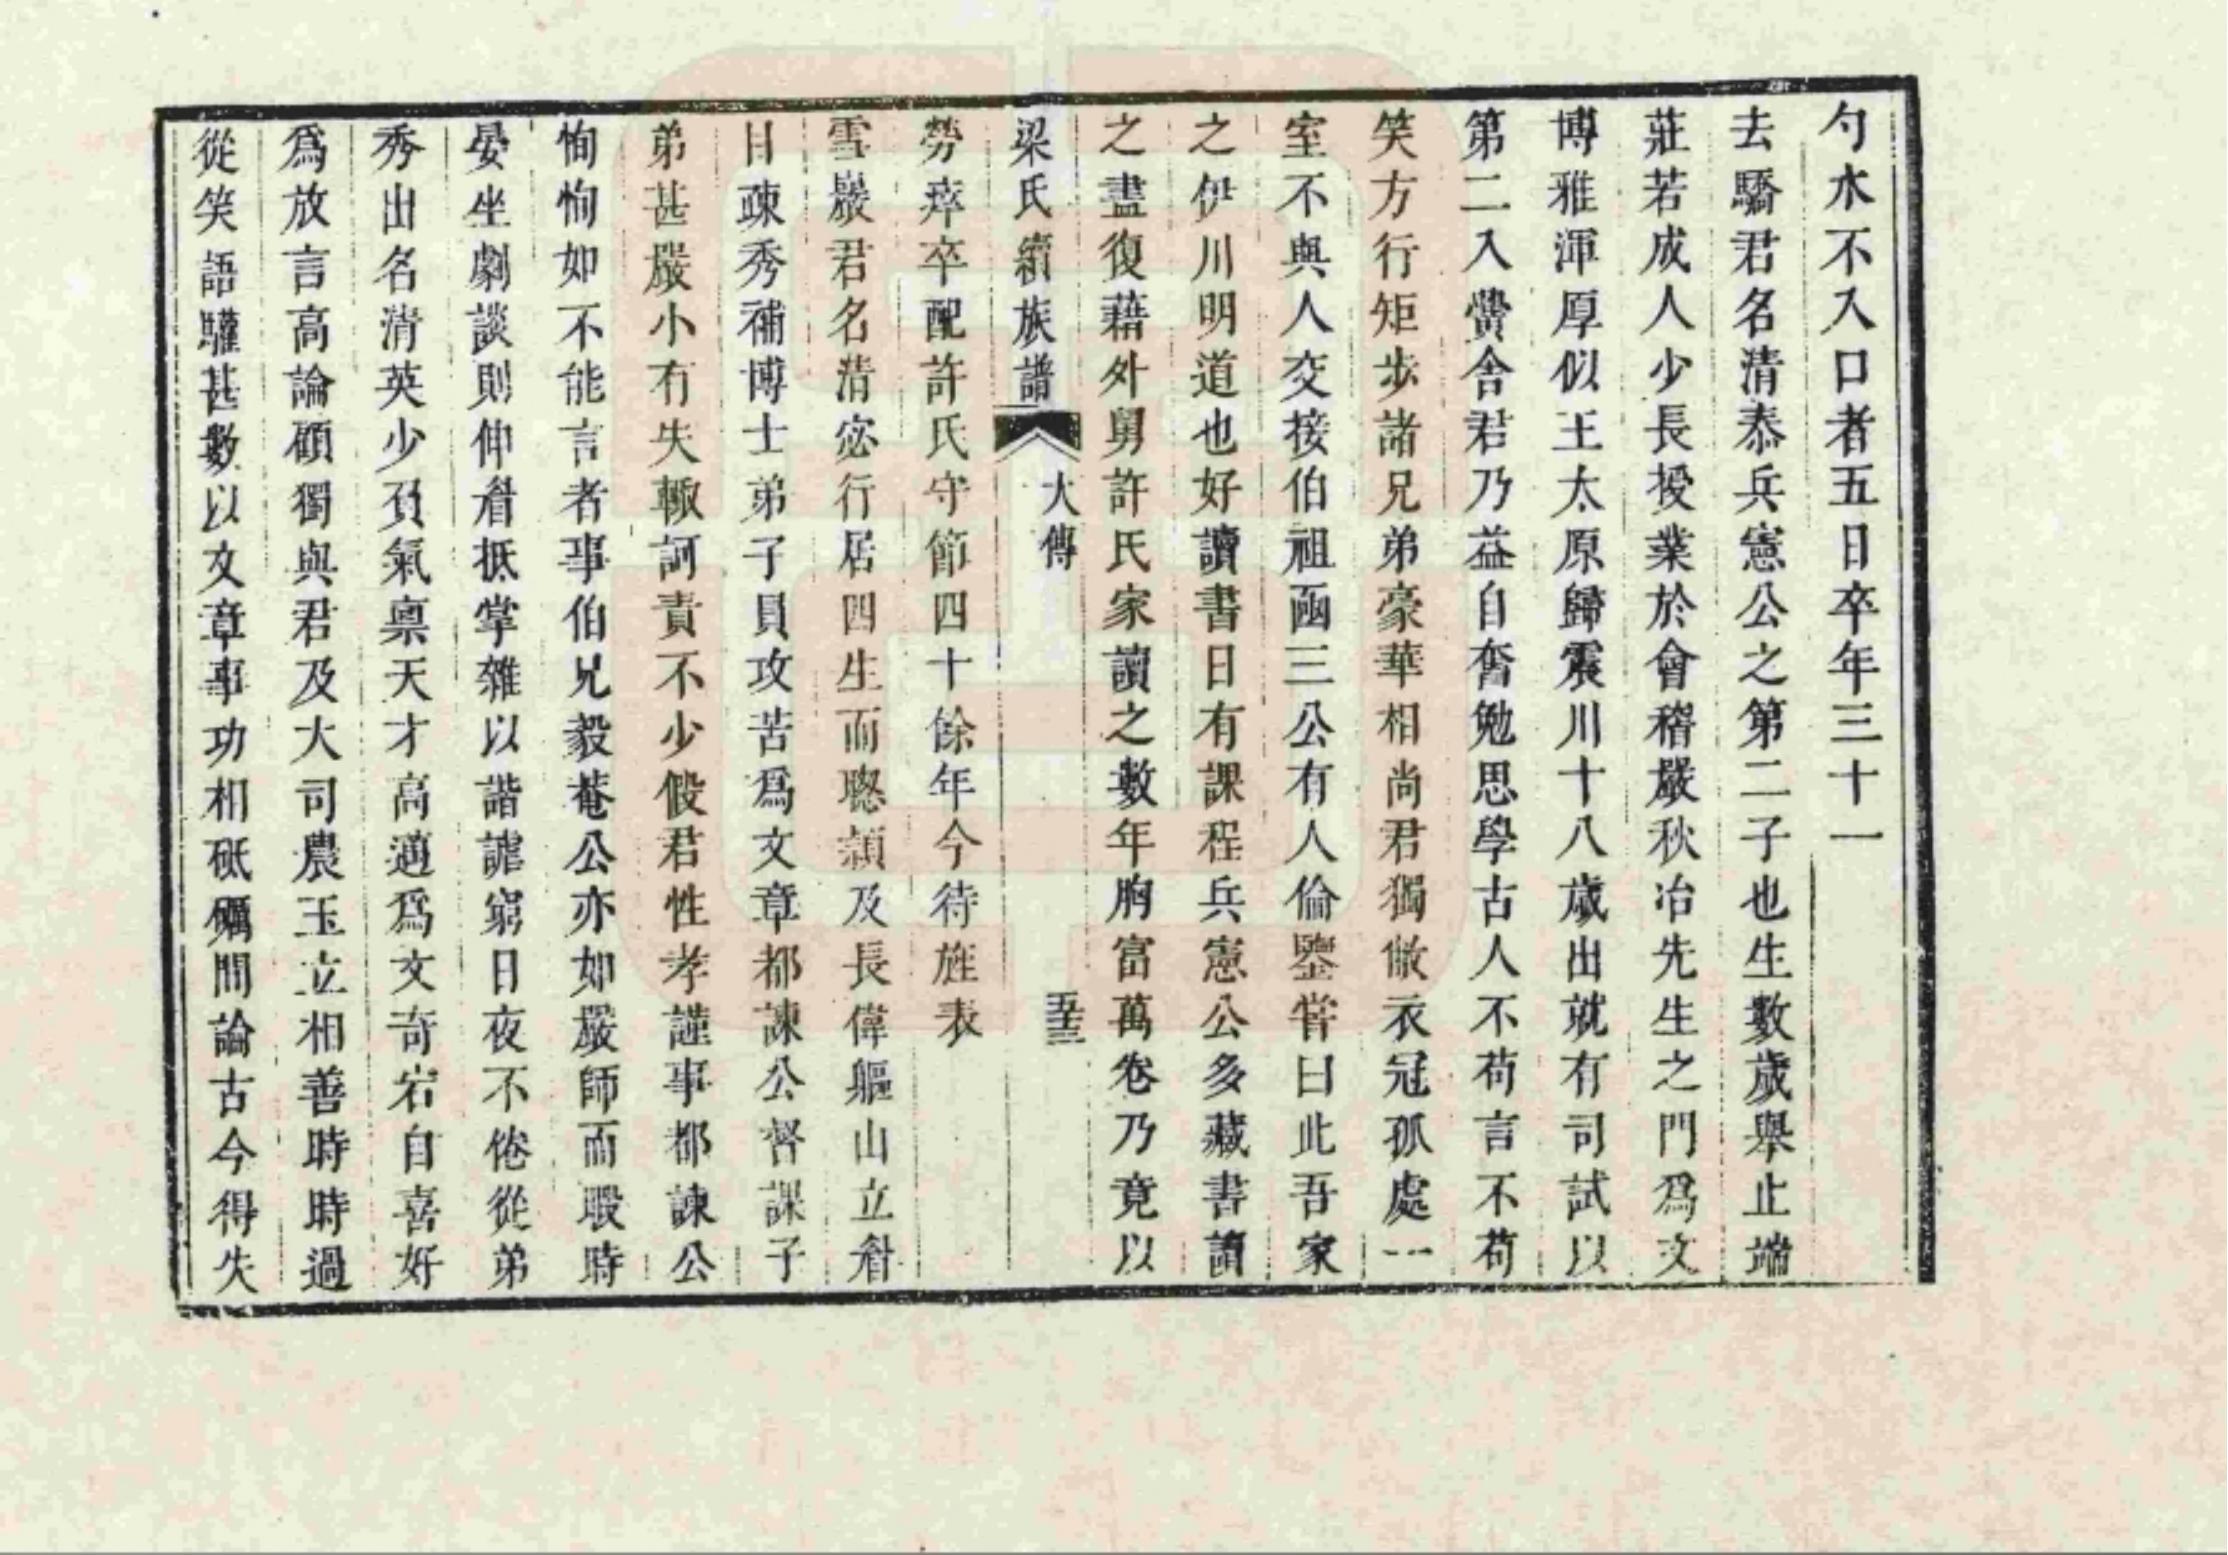 勺水不入口者五日卒年三十一
去驕君名清泰兵憲公之第二子也生數歲舉止端
莊若成人少長授業於會稽嚴秋冶先生之門爲文
博雅渾厚似王太原歸震川十八歲出就有司試以
第二入黌舍君乃益自奮勉思學古人不苟言不苟
笑方行矩步諸兄弟豪華相尚君獨敝衣冠孤處一
室不與人交接伯祖凾三公有人倫鑒甞曰此吾家
之伊川明道也好讀書日有課程兵憲公多藏書讀
之盡復藉外舅許氏家讀之數年胸富萬卷乃竟以
梁氏續族譜
大傳
五十三
勞瘁卒配許氏守節四十餘年今待旌表
雪巖君名清宓行居四生而聰頴及長偉軀山立眉
目疎秀補博士弟子員攻苦爲文章都諫公督課子
弟甚嚴小有失輙訶責不少假君性孝謹事都諫公
恂恂如不能言者事伯兄毅菴公亦如嚴師而暇時
晏坐劇談則伸眉抵掌雜以諧謔窮日夜不倦從弟
秀出名清英少負氣禀天才高邁爲文奇宕自喜好
爲放言高論顧獨與君及大司農玉立相善時時過
從笑語驩甚數以文章事功相砥礪間論古今得失